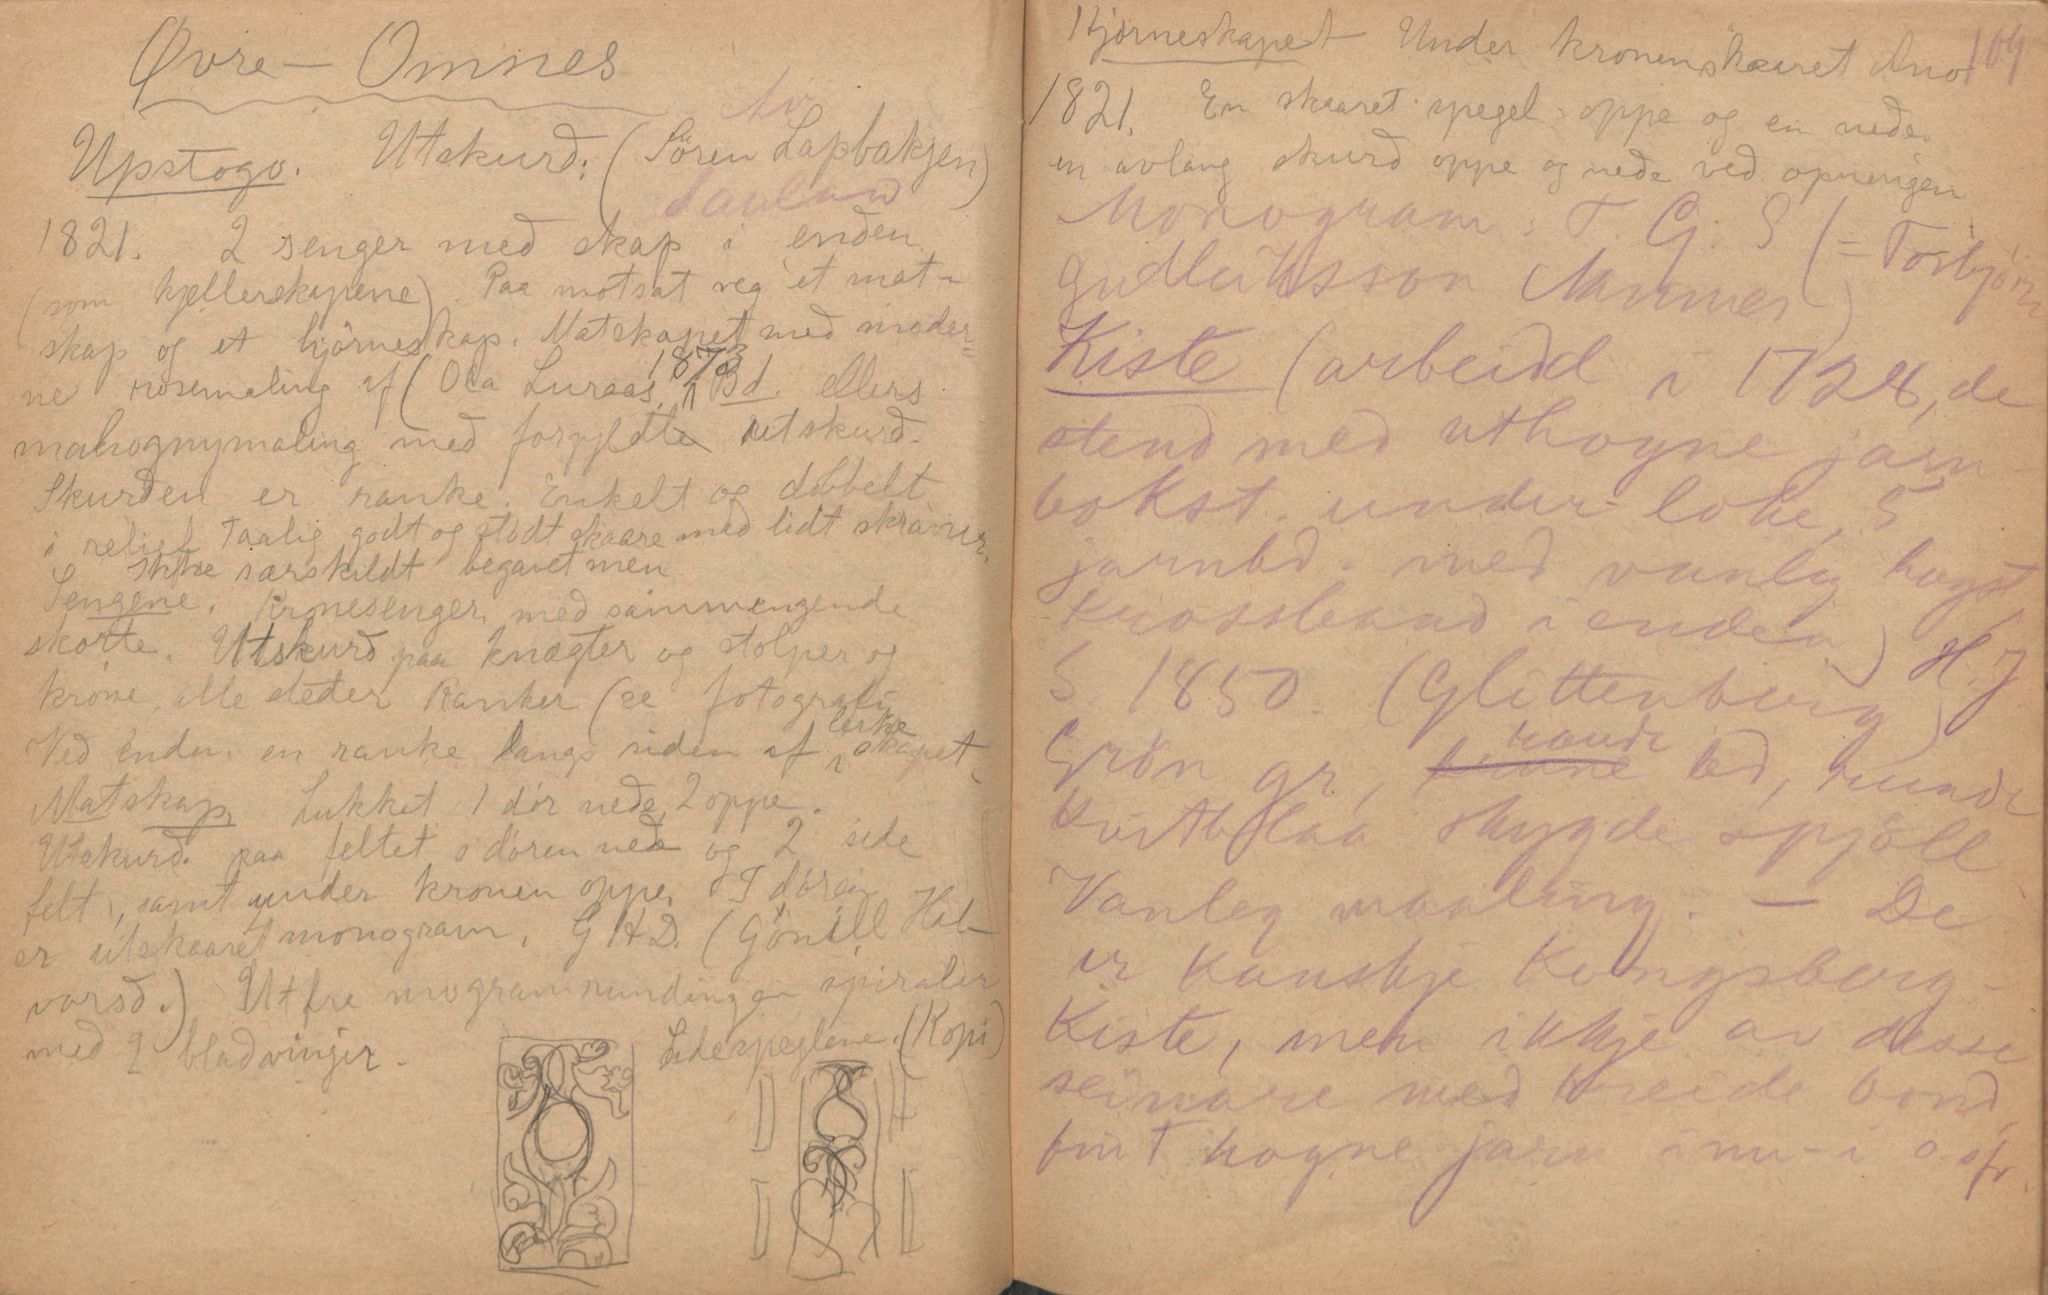 Øvre - Omnes
Upstogo. Utskurð: (Sören Lapbakjen)
av
Sauland
1821. 2 senger með skap i enden
(som kjellerskapene). Paa motsat veg et mat-
skap og et hjörneskap. Matskapet með moder-
ne rosemaling af (Ola Luraas, 1873 Bd. ellers
mahognymaling með forgyldte utskurð.
Skurðen er ranke. Enkelt og dobbelt
i relief. Taalig godt og stödt skaare með lidt skraver.
Ikke særskildt begavet men
Sengene. Kronesenger, með sammengende
skorte. Utskurð paa knægter og stolper og
krone, alle steder Ranker (se fotografi
Ved enden en ranke langs siden af skapet.
Matskap. Lukket 1 dör neðe, 2 oppe.
Utskurð. paa feltet i dören neðe og 2 side
felt, samt under kronen oppe. I dören
er utskaaret monogram. G H D. (Gönill Hal-
vorsð.) Ut fre mogramrundingen spiraler
með 2 blaðvinger. Sidespeglene. (Kopi)
Hjørneskapet Under kronenskaaret Ano 109
1821. En skaaret spegel oppe og en neðe.
en avlang skurð oppe og neðe veð opningen
Monogram: T. G. S (= Torbjörn
Gudleiksson Manmes)
Kiste (arbeidd i 1728, de
stend med uthogne jarn-
bokst. under loke, 5
jarnbd. med vanleg hogst
krossband i enden) H. J
S. 1850. (Glittenberg)
Grön gr, raude bd, runde
kvitblaa skygde spjöll
Vanleg maaling. - De
er kanskje Kongsberg-
kiste, men ikkje av desse
seinare med breide bond,
fint hogne jarn inn-i o.sfr.